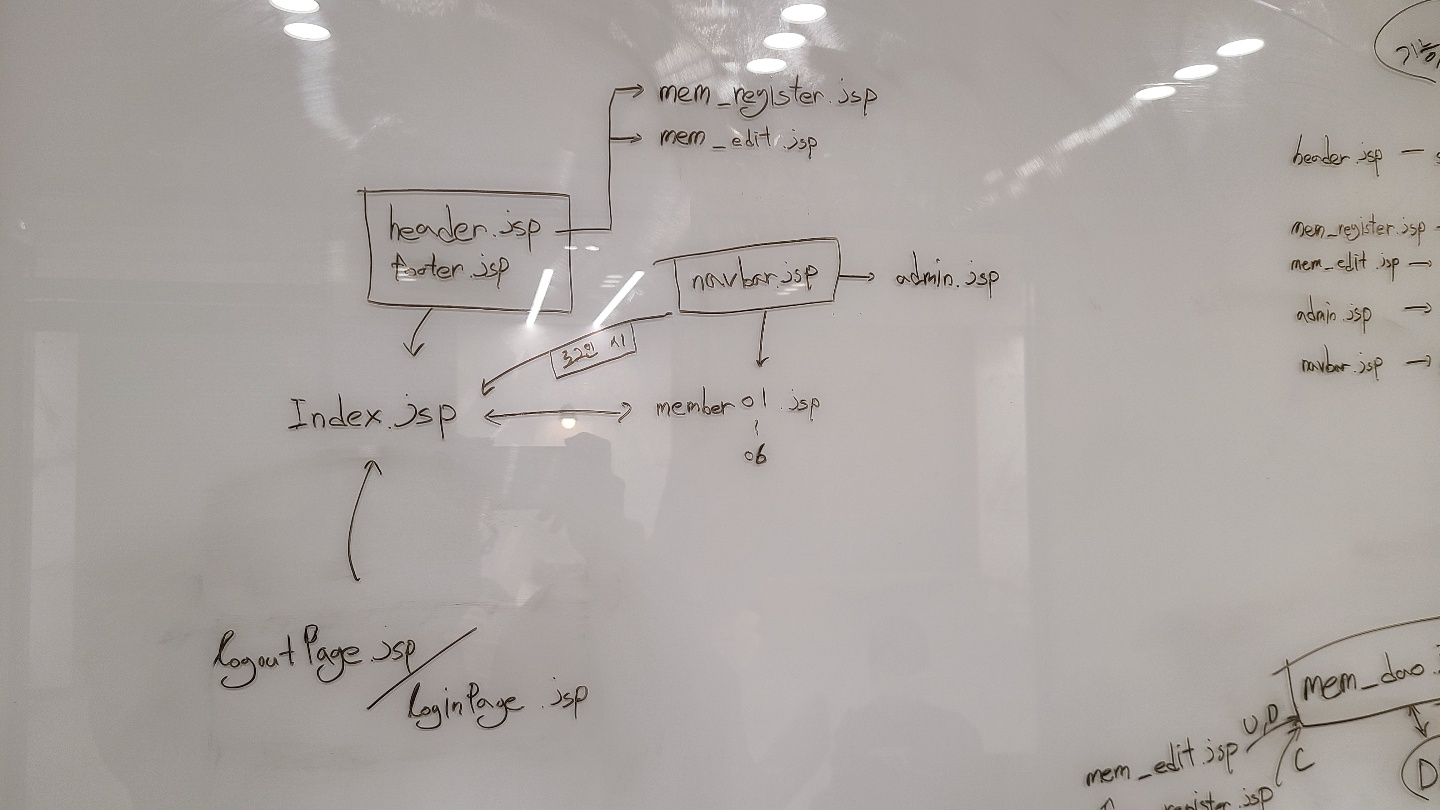 mem_register.jsp
mem_edit.jsp
header.jsp
footer.jsp
navbar.jsp
admin.jsp
로그인 시
Index.jsp
member 01.jsp
~
06
logoutPage.jsp
loginPage.jsp
header.jsp
mem_register.jsp
mem_edit.jsp
admin.jsp
navbar.jsp
mem_dao.
U,D
mem_edit.jsp
C
register.jsp